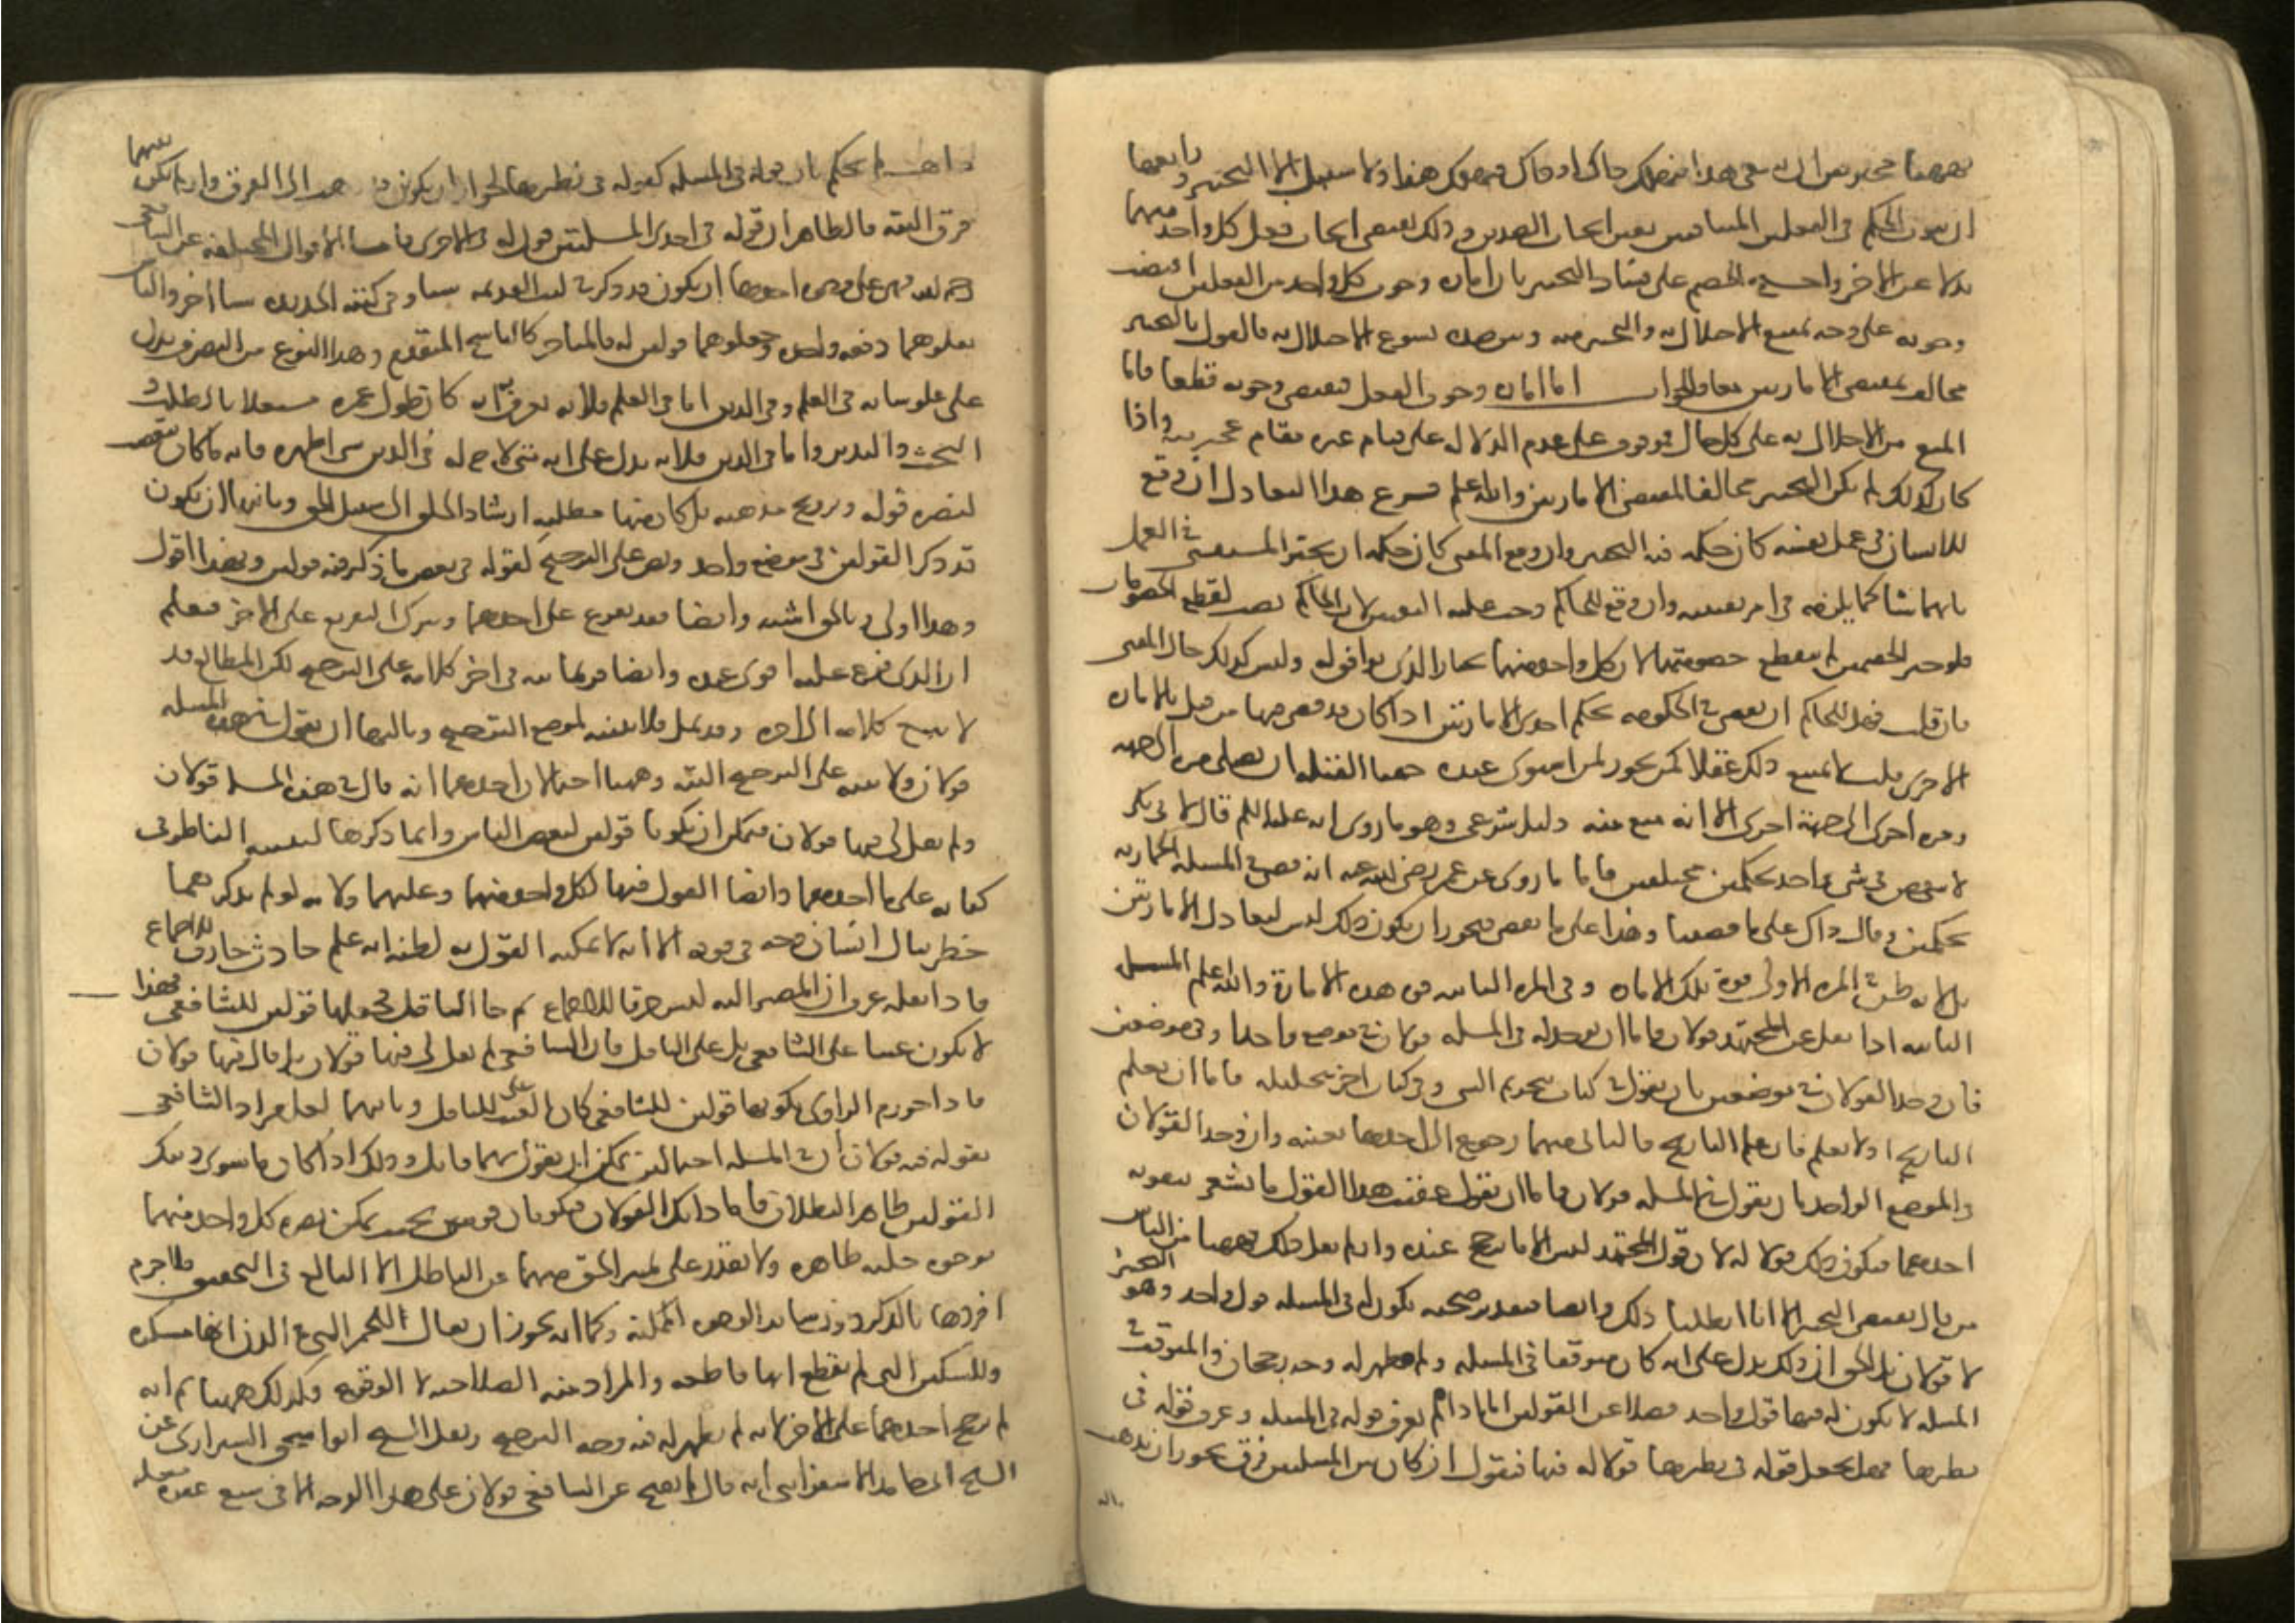 فههنا مخير بين ان يبقى هذا فيهلك ذاك او ذاك فيهلك هذا ولا سبيل الا التخيير ورابعها
ان ثبوت الحكم في الفعلين المتنافيين نفس ايجاب الضدين وذلك يقتضي ايجاب فعل كل واحد منهما
بدلا عن الاخر واحتج الخصم على فساد التخيير بان امارة وجوب كل واحد من الفعلين اقتضت
وجوبه على وجه يمنع الاخلال به والتخيير بينه وبين ضده يسوغ الاخلال به فالقول بالتخيير
مخالف لمقتضى الامارتين معا والجواب اما امارة وجوب الفعل فتقتضي وجوبه قطعا فاما
المنع من الاخلال به على كل حال فموقوف على عدم الدلالة على قيام غيره مقامه واذا
كان كذلك لم يكن التخيير مخالفا لمقتضى الامارتين والله اعلم فرع هذا التعادل ان وقع
للانسان في عمل نفسه كان حكمه فيه التخيير وان وقع للمفتي كان حكمه ان يخير المستفتي في العمل
بايهما شاء كما يلزمه في امر نفسه وان وقع للحاكم وجب عليه التعيين لان الحاكم نصب لقطع الخصومات
فلو خير الخصمين لم تنقطع خصومتهما لان كل واحد منهما يختار الذي يوافقه وليس كذلك حال المفتي
فان قلت فهل للحاكم ان يقضي في الحكومة بحكم احدى الامارتين اذا كان قد قضى فيها من قبل بالامارة
الاخرى قلت لا يمتنع ذلك عقلا كمن يجوز لمن استوى عنده جهتا القبلة ان يصلي مرة الى جهة
ومرة اخرى الى جهة اخرى الا انه منع منه دليل شرعي وهو ما روي انه عليه السلام قال لابي بكر
لا تقض في شيء واحد بحكمين مختلفين فاما ما روي عن عمر رضي الله عنه انه قضى في المسألة الحمارية
بحكمين وقال ذاك على ما قضينا وهذا على ما نقضي فيجوز ان يكون ذلك ليس لتعادل الامارتين
بل لانه ظن في المرة الاولى قوة تلك الامارة وفي المرة الثانية قوة هذه الامارة والله اعلم المسألة
الثانية اذا نقل عن المجتهد قولان فاما ان يوجد له في المسألة قولان في موضع واحد او في موضعين
فان وجد القولان في موضعين بان يقول في كتاب بتحريم الشيء وفي كتاب اخر بتحليله فاما ان يعلم
التاريخ او لا يعلم فان علم التاريخ فالثاني منهما رجوع الى احدهما بعينه وان وجد القولان
في الموضع الواحد بان يقول في المسألة قولان فاما ان يقول عقيب هذا القول ما يشعر بتقوية
احدهما فيكون ذلك قولا له لان قول المجتهد ليس الا ما ترجح عنده وان لم يفعل ذلك فههنا من الناس
من قال يقتضي التخيير الا انا ابطلنا ذلك وايضا فبتقدير صحته يكون له في المسألة قول واحد وهو التخيير
لا قولان بل الحق ان ذلك يدل على انه كان متوقفا في المسألة ولم يظهر له وجه رجحان والمتوقف في
المسألة لا يكون له فيها قول واحد فضلا عن القولين اما اذا لم يعرف قوله في المسألة وعرف قوله في
نظيرها فهل يجعل قوله في نظيرها قولا له فيها فنقول ان كان بين المسألتين فرق يجوز ان يذهب
اليه ذاهب لم يحكم بان قوله في المسألة كقوله في نظيرها لجواز ان يكون قد ذهب الى الفرق وان لم يكن بينهما
فرق البتة فالظاهر ان قوله في احدى المسألتين قول له في الاخرى فاما الاقوال المختلفة عن الشافعي
رحمه الله فهي على وجوه احدها ان يكون قد ذكر في كتبه القديمة شيئا وفي كتبه الجديدة شيئا اخر والناس
نقلوهما دفعة واحدة وجعلوهما قولين له فالمتاخر كالناسخ للمتقدم وهذا النوع من التصرف يدل
على علو شانه في العلم وفي الدين اما في العلم فلانه يعرف به انه كان طول عمره مشتغلا بالطلب و
البحث والتدبر واما في الدين فلانه يدل على انه متى لاح له في الدين شيء اظهره فانه ما كان يتعصب
لنصرة قوله وترويج مذهبه بل كان منتهى مطلبه ارشاد الخلق الى سبيل الحق وثانيها ان يكون
قد ذكر القولين في موضع واحد ونص على الترجيح كقوله في بعض ما ذكر فيه قولين وبهذا اقول
وهذا اولى وبالحق اشبه وايضا فقد يفرع على احدهما ويترك التفريع على الاخر فيعلم
ان الذي فرع عليه اقوى عنده وايضا فربما نبه في اخر كلامه على الترجيح لكن المطالع قد
لا يتتبع كلامه الى اخره وقد يمل فلا يتنبه لموضع الترجيح وثالثها ان يقول في هذه المسألة
قولان ولا ينبه على الترجيح البتة وههنا احتمالان احدهما انه قال في هذه المسألة قولان
ولم يقل لي فيها قولان فيمكن ان يكونا قولين لبعض الناس وانما ذكرهما لتنبيه الناظر في
كتابه على ما اخذهما وايضاح القول فيها لكل واحد منهما وعليهما ولانه لو لم يذكرهما
خطر ببال انسان وجه في قوته الا انه لا يمكنه القول به لظنه انه علم حادث خارق للاجماع
فاذا نقله عرف ان المصير اليه ليس خرقا للاجماع ثم جاء الناقل فجعلها قولين للشافعي فهذا
لا يكون عيبا على الشافعي بل على الناقل فان الشافعي لم يقل لي فيها قولان بل قال فيها قولان
فاذا جزم الراوي بكونهما قولين للشافعي كان العيب على الناقل وثانيهما لعل مراد الشافعي
بقوله فيه قولان ان في المسألة احتمالين يمكن ان يقول بهما قائل وذلك اذا كان ما سوى ذينك
القولين ظاهر البطلان فاما ذانك القولان فيكونان قويين بحيث يمكن نصرة كل واحد منهما
بوجوه جلية ظاهرة ولا يقدر على تمييز الحق منهما عن الباطل الا البالغ في التحقيق فلا جرم
افردهما بالذكر دون سائر الوجوه الممكنة وكما انه يجوز ان يقال للخمر التي في الدن انها مسكرة
وللسكين التي لم تقطع انها قاطعة والمراد منه الصلاحية لا الوقوع وكذلك ههنا ثم انه
لم يرجح احدهما على الاخر لانه لم يظهر له فيه وجه الترجيح ونقل الشيخ ابو اسحق الشيرازي عن
الشيخ ابي حامد الاسفرايني انه قال لم يصح عن الشافعي قولان على هذا الوجه الا في سبع عشرة مسألة